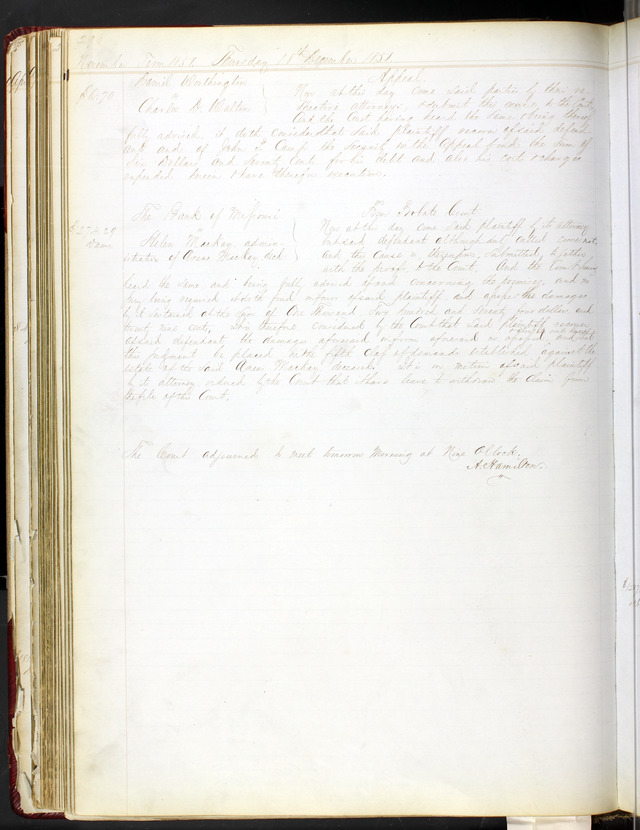 Term 1851. Tuesday December 1851
Daniel Worthington
Appeal
$6.70
Now at this day come said parties by their re-
Charles D.
spective attorneys submit the cause to the Court
And the Court having heard the same & being there
fully advised, it doth consider that said plaintiff recover of said defend
ant and of John Camp the security in the Appeal Bond the sum of
Six Dollars and Seventy Cents for his debt and also his costs & charges
expended herein & have therefor execution.
The Bank of Missouri
From Probate Court
Now at this day come said plaintiff by its attorney
Helen Mackay admin-
but said defendant although duly called comes not
istratrix of Aeneas Mackay decd
And this cause is thereupon submitted together
with the proofs to the Court. And the Court having
heard the same and being fully advised of and concerning the premises, and no
jury being required doth find in favor of said plaintiff and assess the damages
by it sustained at the sum of One Thousand Two hundred and Seventy four dollars and
twenty nine cents. It is therefore considered by the Court that said plaintiff recover
of said defendant the damages aforesaid in form aforesaid
the judgment be placed in the fifth class of demands established against the
estate of the said Aeneas Mackay deceased. And on motion of said plaintiff
by its attorney ordered by the Court that leave to withdraw the claim from
the file of this Court.
The Court adjourned to meet tomorrow Morning at Nine OClock.
A. Hamilton.